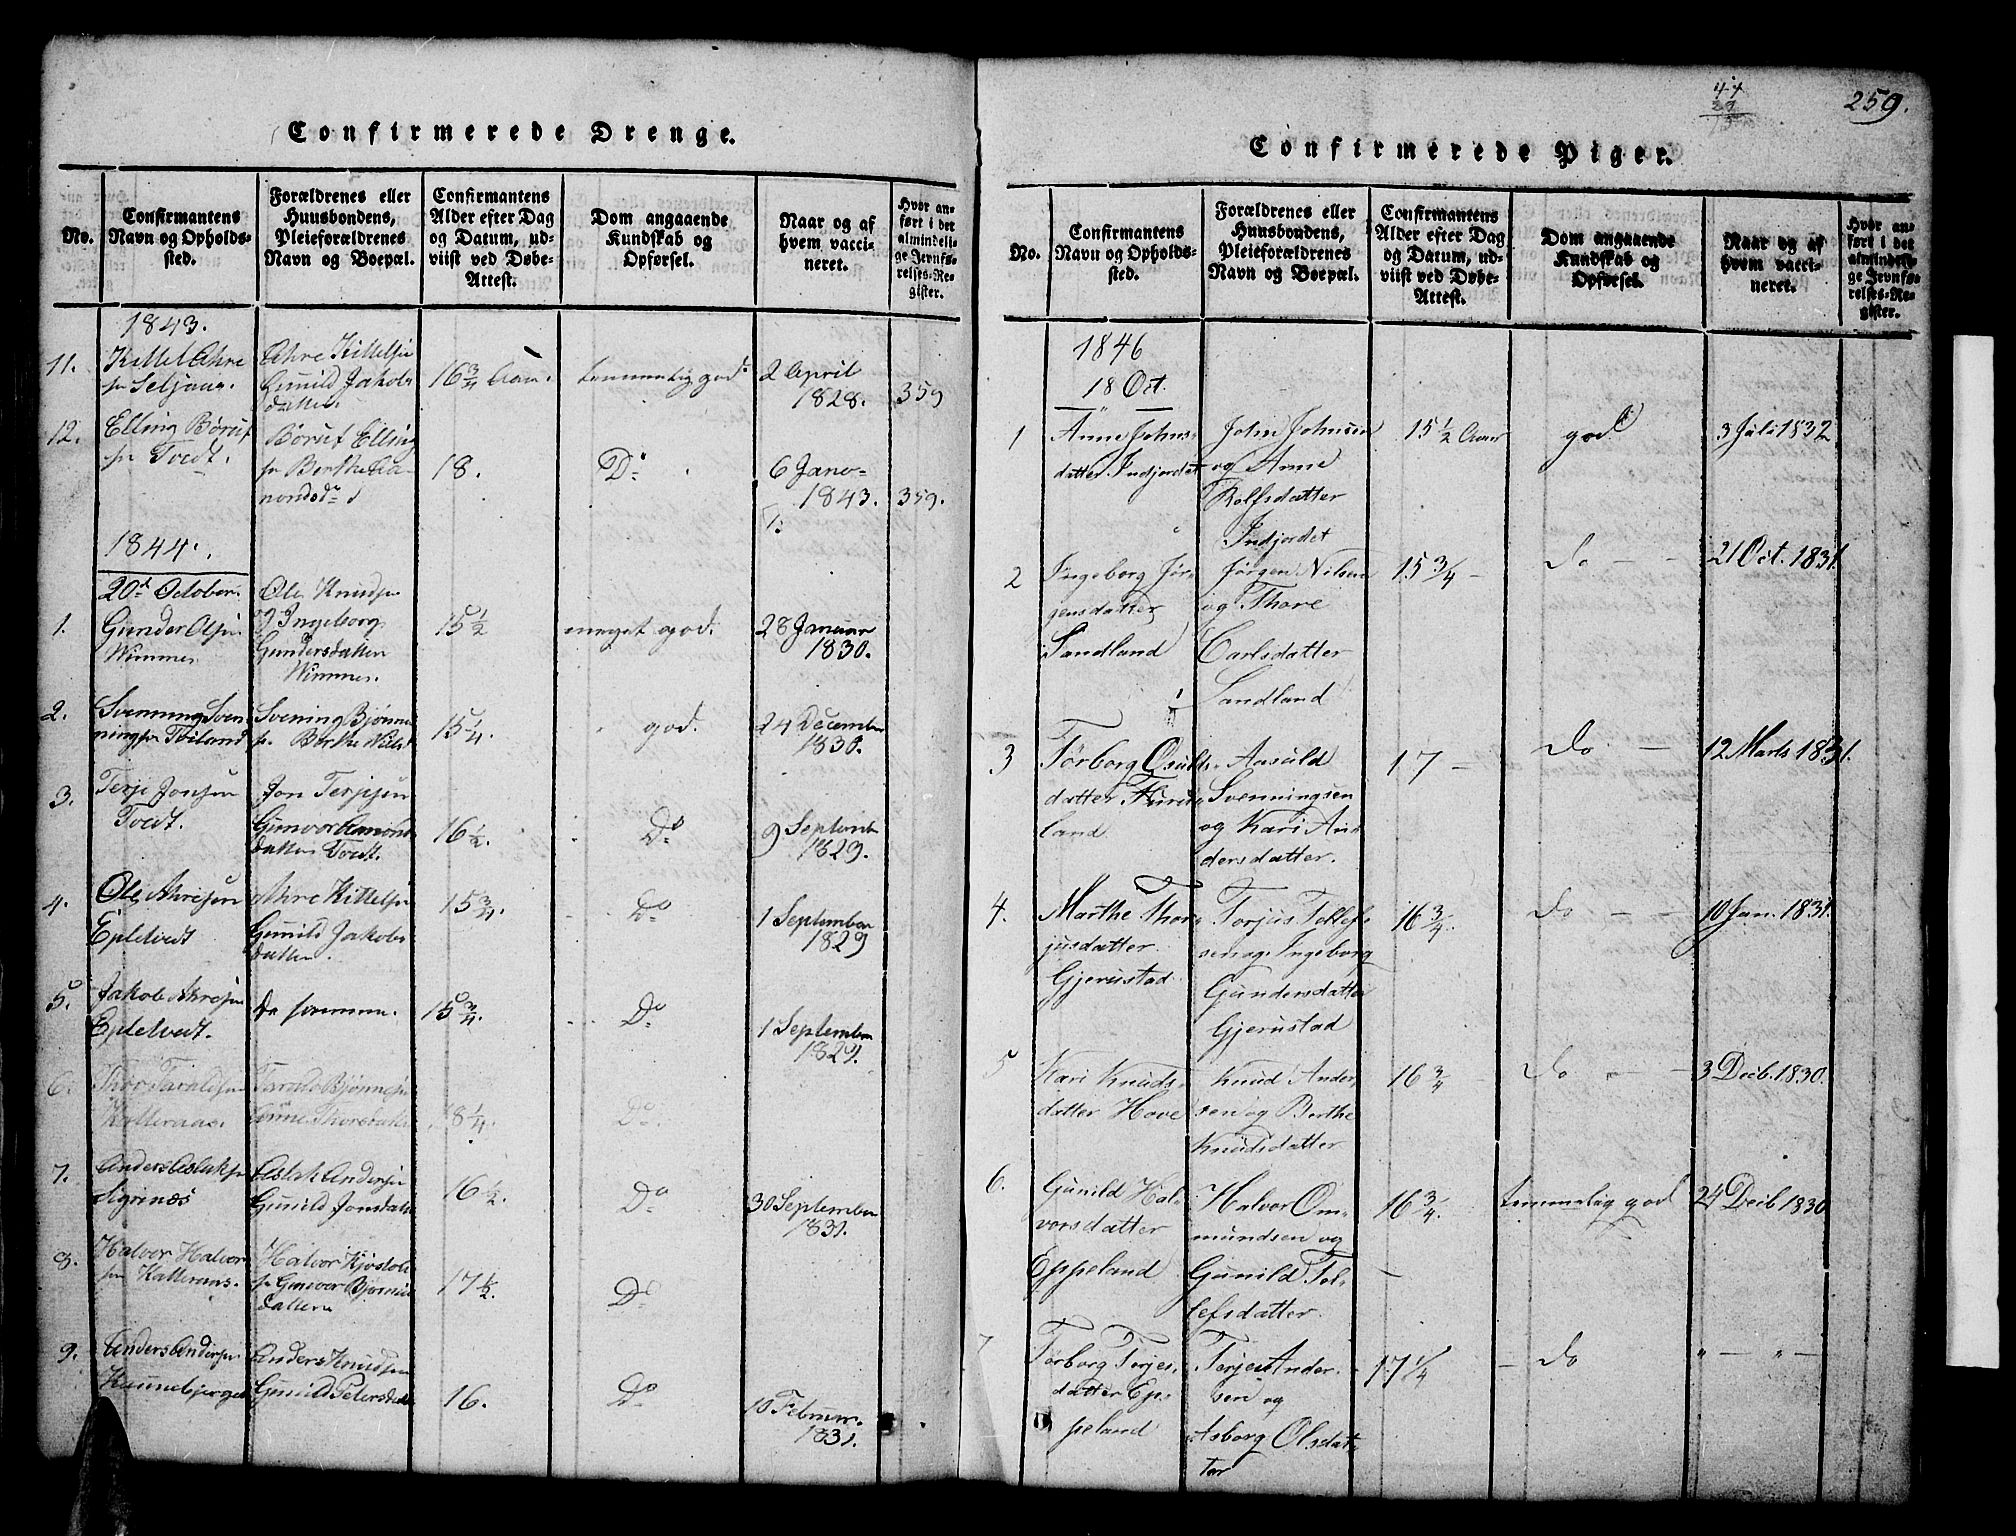 Confirmerede Drenge.
No.
Confirmantens
Navn og Opholds-
sted.
Forældrenes eller
Huusbondens,
Pleieforældrenes
Navn og Boepæl.
Confirmantens
Alder efter Dag
og Datum, ud-
viist ved Døbe-
Attest.
Dom angaaende
Kundskab og
Opførsel.
Naar og af
hvem vacci-
neret.
Hvor an-
ført i det
almindeli-
ge Jevnfø-
relses-Re-
gister.
1843.
11.
Kittel Ahre
sen Seljaas.
Ahre Kittelsen
Gunild Jakobs
datter.
16 3/4 Aar.
temmelig god.
2 April
1828.
359
12.
Elling Børuf
sen Tvedt.
Børuf Elling
sen Berthe
18.
Do
6 Janv
1843.
359.
1844.
20de October.
1.
Gunder Olsen
Wimmes
Ole Knudsen
og Ingeborg
Gundersdatter
Wimmes.
15 1/2
meget god.
28 Januar
1830.
2.
Svenning Sven
ningsen
Svening Bjønne
sen Berthe Niels
15 1/4.
god.
24 December
1830.
3.
Terje Jonsen
Tvedt.
Jon Terjesen
Gunvor Amonds
datter Tvedt.
16 1/2.
Do
9 September
1829.
4.
Ole Ahresen
Epletvedt
Ahre Kittelsen
Gunild Jakobs
datter.
15 3/4.
Do
1 September
1829
5.
Jakob Ahresen
Epletvedt.
De samme.
15 3/4.
Do
1 September
1829.
6.
Thor Taraldsen
Kalteraas.
Tarald Bjønnesen
Anne Thorsdatter
18 1/4.
Do
7.
Anders Aslaksen
Aslak Andersen
Gunild Jonsdatter
16 1/2.
Do
30 September
1831.
8.
Halvor Halvor
sen Kalteraas.
Halvor Kjøstol
sen Gunvor
datter
17 1/2.
Do
9.
Anders Andersen
Anders Knudsen
Gunild Petersdatter
16.
Do
10 Februar
1831.
44
29
259.
Confirmerede Piger.
No.
Confirmantens
Navn og Opholds-
sted.
Forældrenes eller
Huusbondens,
Pleieforældrenes
Navn og Boepæl.
Confirmantens
Alder efter Dag
og Datum, ud-
viist ved Døbe-
Attest.
Dom angaaende
Kundskab og
Opførsel.
Naar og af
hvem vacci-
neret.
Hvor an-
ført i det
almindeli-
ge Jevnfø-
relses-Re-
gister.
1846
18 Oct.
1
Anne Johns-
datter Indjordet
John Johnsen
og Anne
Rolfsdatter
Indjordet
15 1/2 Aar
god
3 Juli 1832
2
Ingeborg Jør-
gensdatter
Sandland
Jørgen Nilsen
og Thore
Carlsdatter
Sandland
15 3/4 -
do - -
21 Oct. 1831.
3
Tørborg Osulds-
datter
land
Aasuld
Svenningsen
og Kari An-
dersdatter.
17 -
do -
12 Marts 1831.
4.
Marthe Thor-
jusdatter
Gjerustad
Torjus Tellef-
sen og Ingeborg
Gundersdatter
Gjerustad
16 3/4.
do - -
10 Jan. 1831.
5
Kari Knuds-
datter Hove
Knud Ander-
sen og Berthe
Knudsdatter
16 3/4 -
do - -
3 Decb. 1830.
6.
Gunild Hal-
vorsdatter
Eppeland
Halvor Om-
mundsen og
Gunild Tol-
lefsdatter.
16 3/4.
temmelig god
24 Decb 1830
7
Tørborg Terjes-
datter Ep-
peland
Terjes Ander-
sen og
Asborg Olsdat-
ter
17 1/4
- do
" - " -